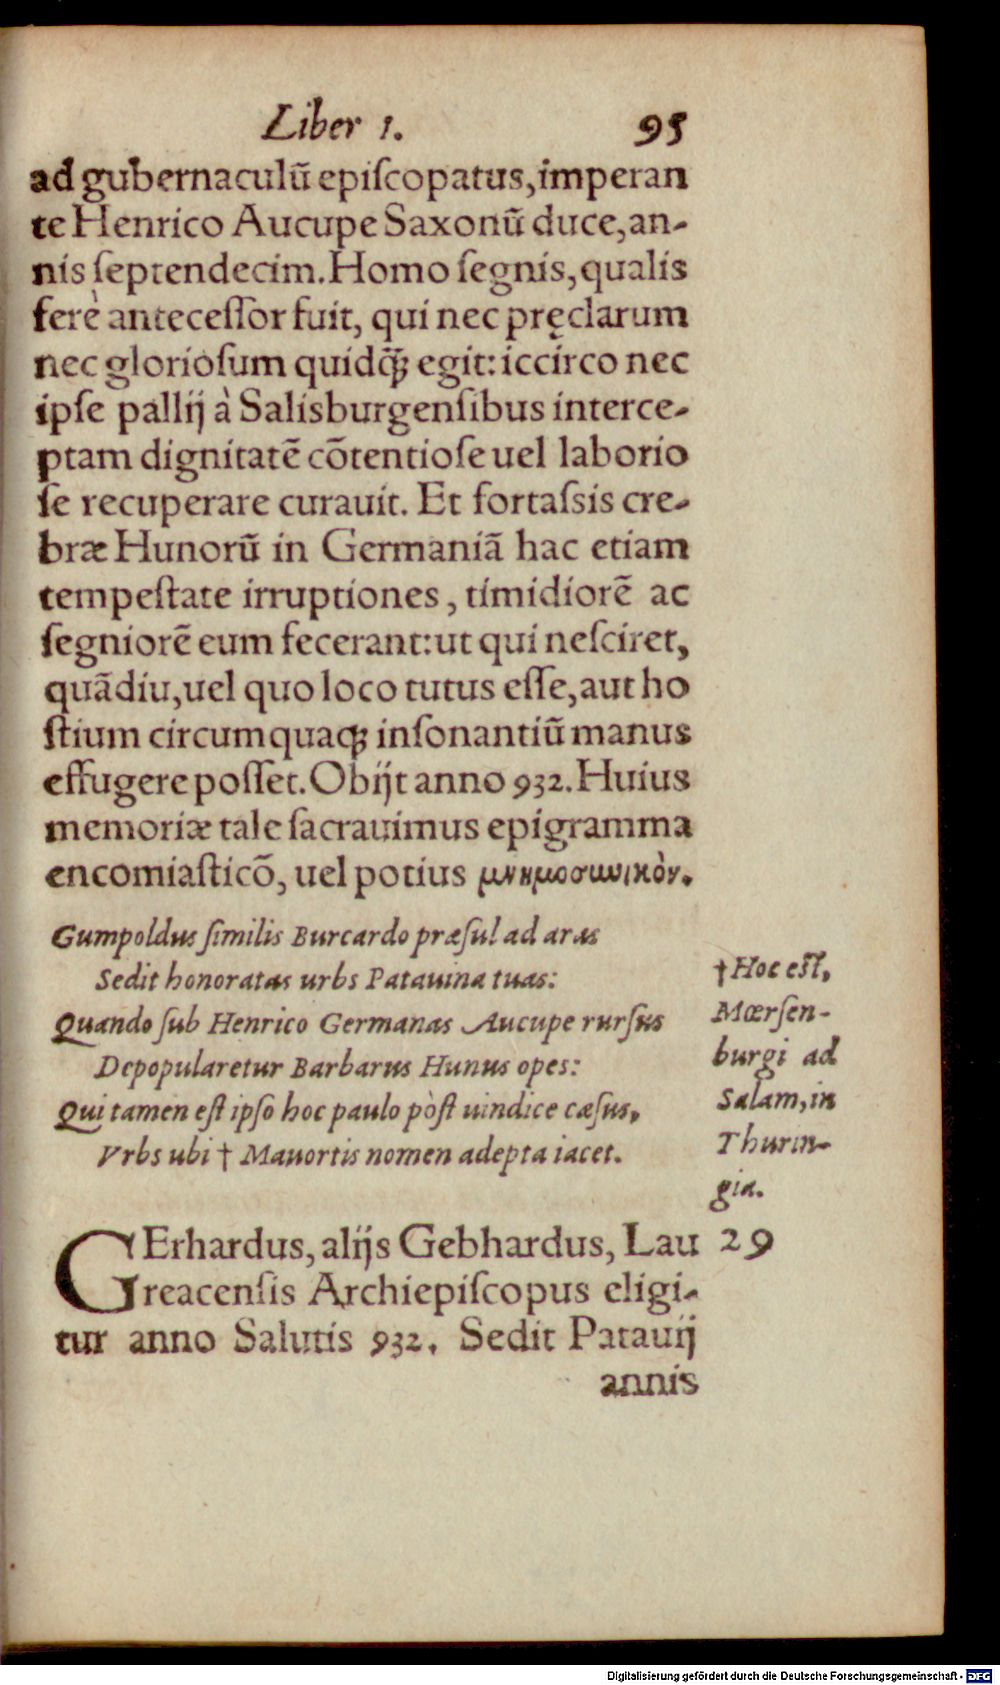 Liber 1. 95
ad gubernaculũ epiſcopatus, imperan
te Henrico Aucupe Saxonũ duce, an-
nis ſeptendecim. Homo ſegnis, qualis
ferè anteceſſor fuit, qui nec pręclarum
nec glorioſum quidq̃ꝫ egit: iccirco nec
ipſe pallij à Salisburgenſibus interce-
ptam dignitatẽ cõtentioſe uel laborio
ſe recuperare curauit. Et fortaſsis cre-
bræ Hunorũ in Germaniã hac etiam
tempeſtate irruptiones, timidiorẽ ac
ſegniorẽ eum fecerant: ut qui neſciret,
quãdiu, uel quo loco tutus eſſe, aut ho
ſtium circumquaqꝫ inſonantiũ manus
effugere poſſet. Obijt anno 932. Huius
memoriæ tale ſacrauimus epigramma
encomiaſticõ, uel potius μνημοσωνικὸν.
Gumpoldus ſimilis Burcardo præſul ad aras
Sedit honoratas urbs Patauina tuas:
Quando ſub Henrico Germanas Aucupe rurſus
Depopularetur Barbarus Hunus opes:
Qui tamen eſt ipſo hoc paulo pòſt uindice cæſus,
Vrbs ubi † Mauortis nomen adepta iacet.
† Hoc eſt,
Mœrſen-
burgi ad
Salam, in
Thurin-
gia.
GErhardus, alijs Gebhardus, Lau 29
reacenſis Archiepiſcopus eligi-
tur anno Salutis 932. Sedit Patauij
annis
Digitalisierung gefördert durch die Deutsche Forschungsgemeinschaft - DFG